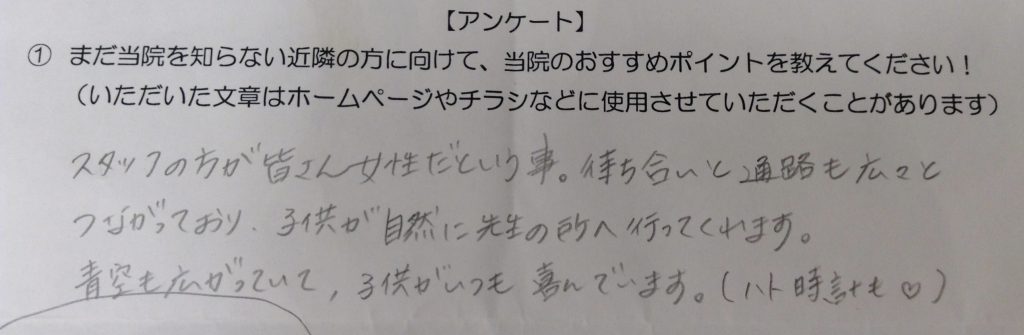 【アンケート】
① まだ当院を知らない近隣の方に向けて、当院のおすすめポイントを教えてください！
（いただいた文章はホームページやチラシなどに使用させていただくことがあります）
スタッフの方が皆さん女性だという事。待ち合いと通路も広々と
つながっており、子供が自然に先生の所へ行ってくれます。
青空も広がっていて，子供がいつも喜んでいます。(ハト時計も♡)